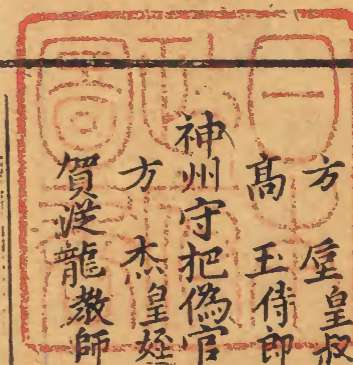 方垕皇叔
髙玉侍郎
神州守把偽官
方杰皇姪
賀從龍教師